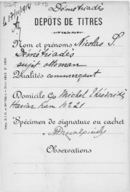 Dimitriadis
DEPÔTS DE TITRES
Nom et prénoms Nicolas S.
Dimitriadis
sujet ottoman
Qualités commerçant
Domicile Michel
Haviar Han N° 21
Spécimen de signature ou cachet
Observations